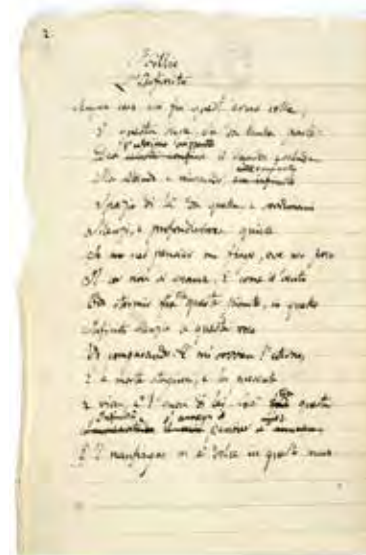 2.
Idillio
L'Infinito
Sempre caro mi fu quest'ermo colle,
E questa siepe che da tanta parte
l'ultimo orizzonte
Del celeste confine il guardo esclude.
interminato
Ma sedendo e mirando un infinito
Spazio di là da quella, e sovrumani
Silenzi, e profondissima quiete
Io nel pensier mi fingo, ove per poco
Il cor non si spaura. E come il vento
Odo stormir fra queste piante, io quello
Infinito silenzio a questa voce
Vo comparando. E mi sovvien l'eterno,
E le morte stagioni, e la presente
E viva, e 'l suon di lei. Così questa
s'annega il mio
E 'l naufragar m'è dolce in questo mare.